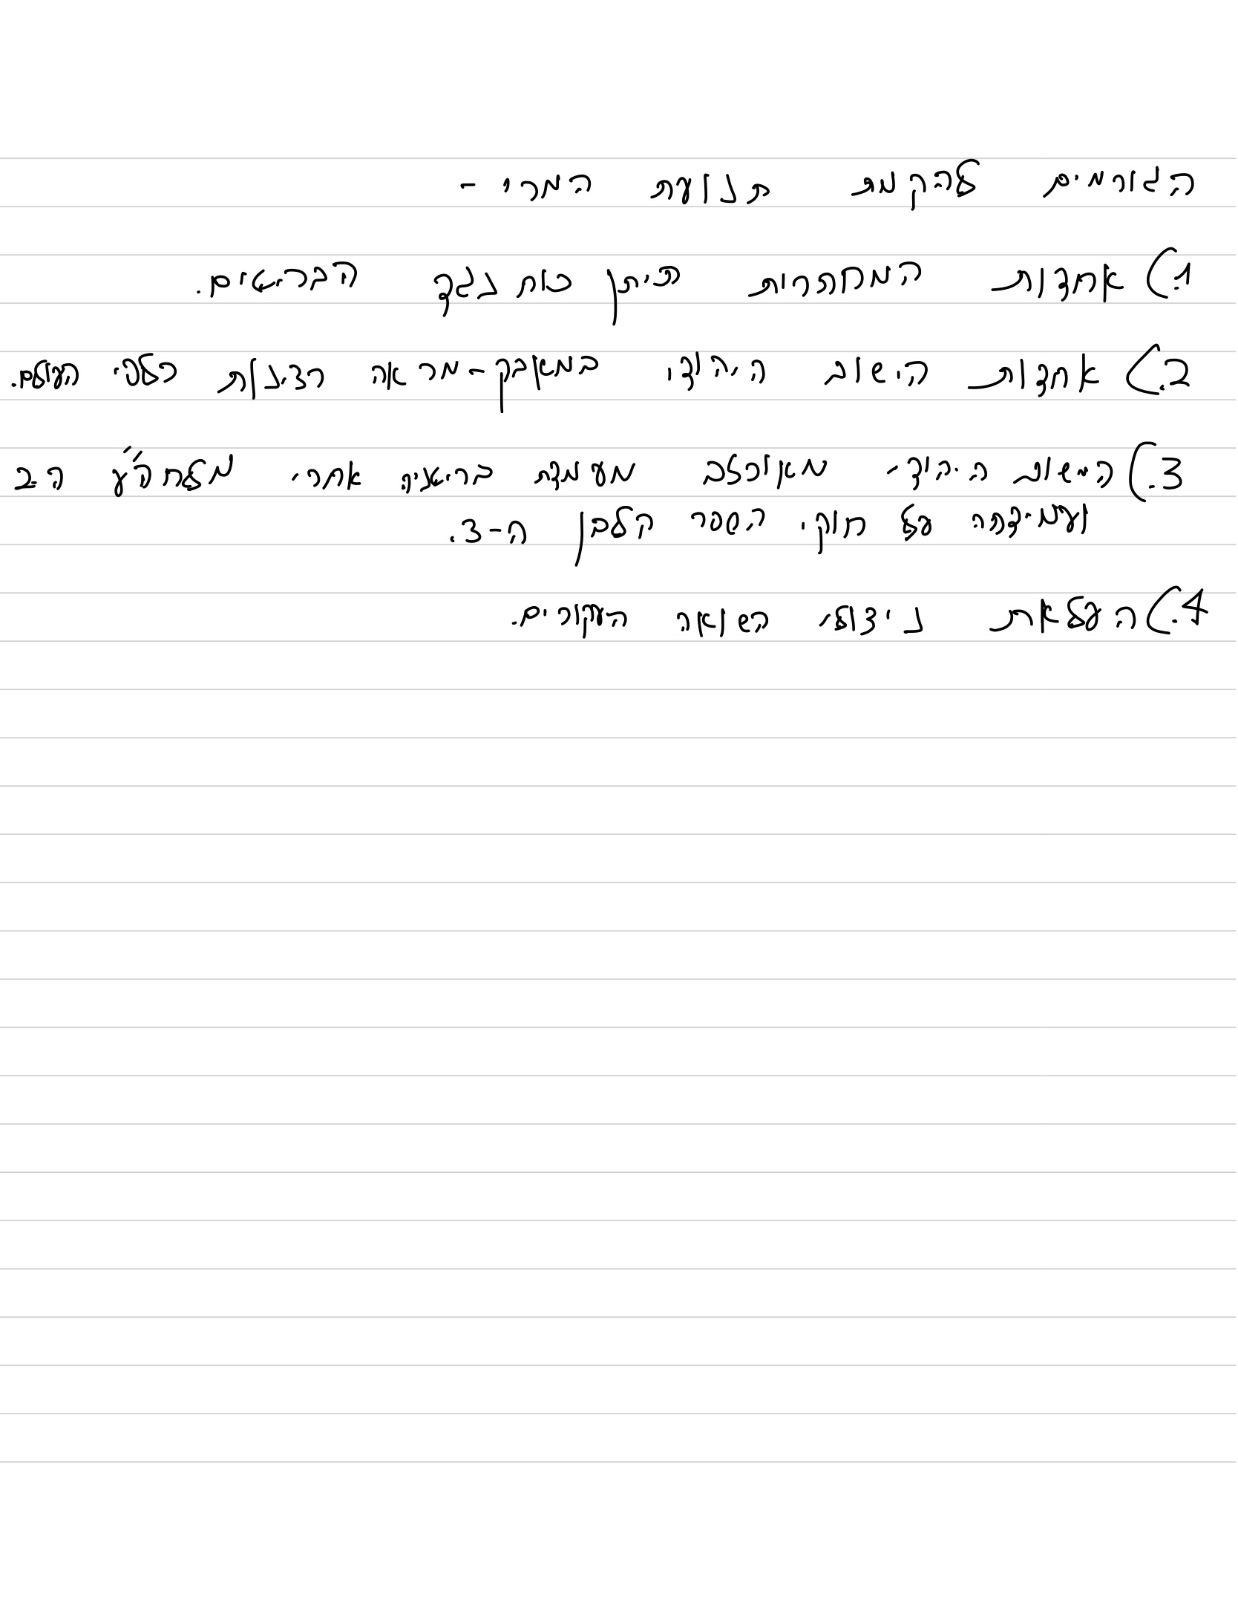 הגורמים להקמת תנועת המרי -
1.) אחדות המחתרות תיתן כוח נגד הבריטים.
2.) אחדות הישוב היהודי במאבק - מראה רצינות כלפי העולם.
3.) הישוב היהודי מאוכזב מעמדת בריטניה אחרי מלחה"ע ה-2
ועמידתה על חוקי הספר הלבן ה-3.
4.) העלאת ניצולי השואה העקורים.